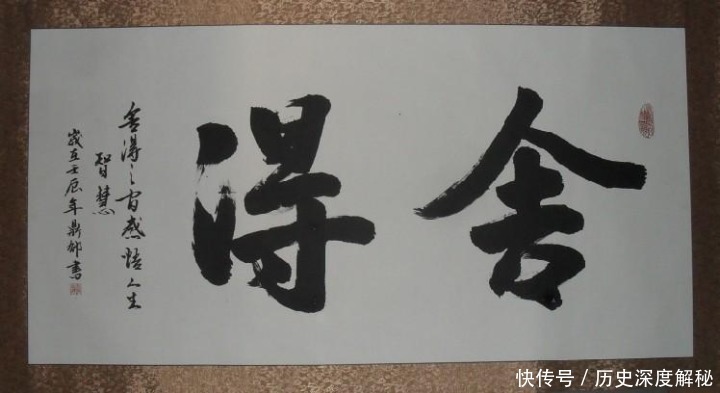 舍得
舍得之间感悟人生
智慧
岁在壬辰年鼎邮书
快传号 / 历史深度解秘